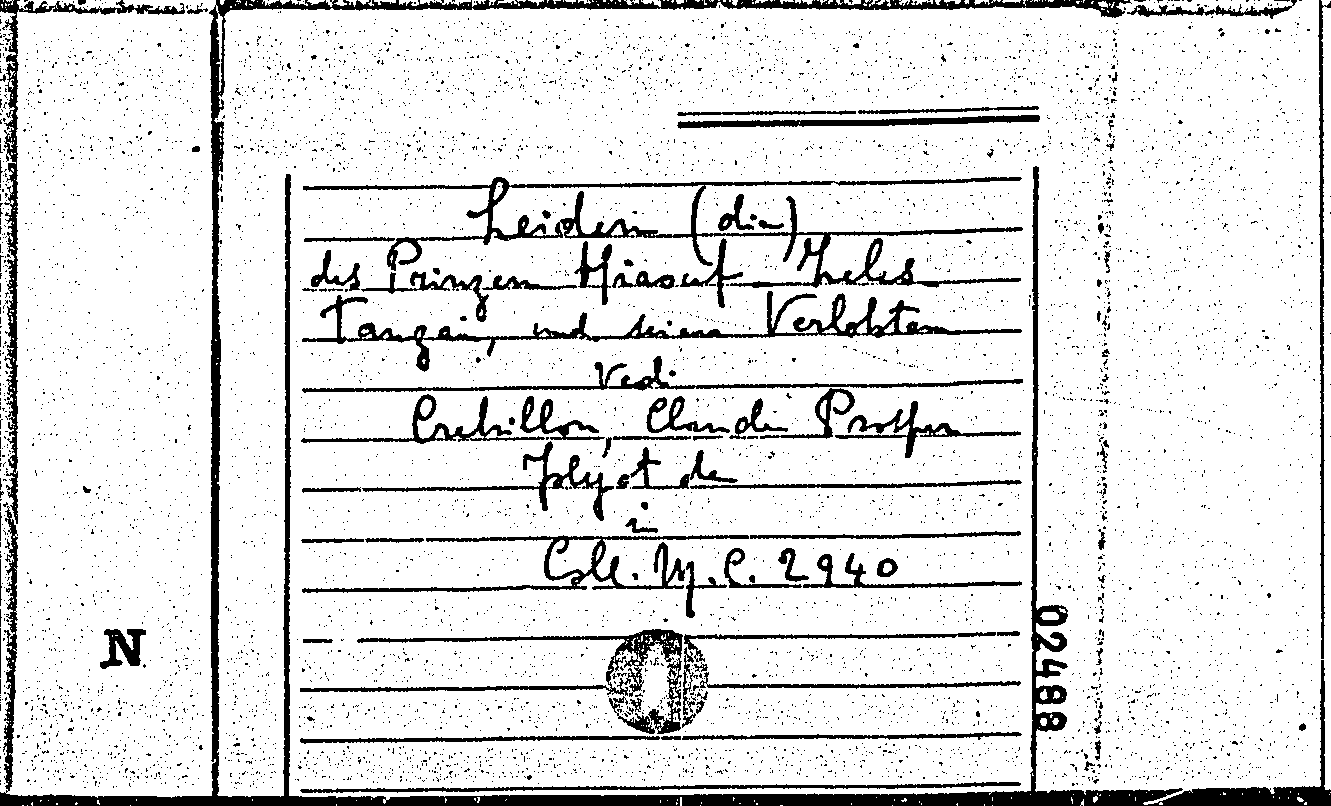 Leiden (die)
des Prinzen Hiaouf Zeles
Tanzai, und seiner Verlobten
Vedi
Crebillon, Claude Prosper
Jolyot de
in
Coll. M. C. 2940
N
02488